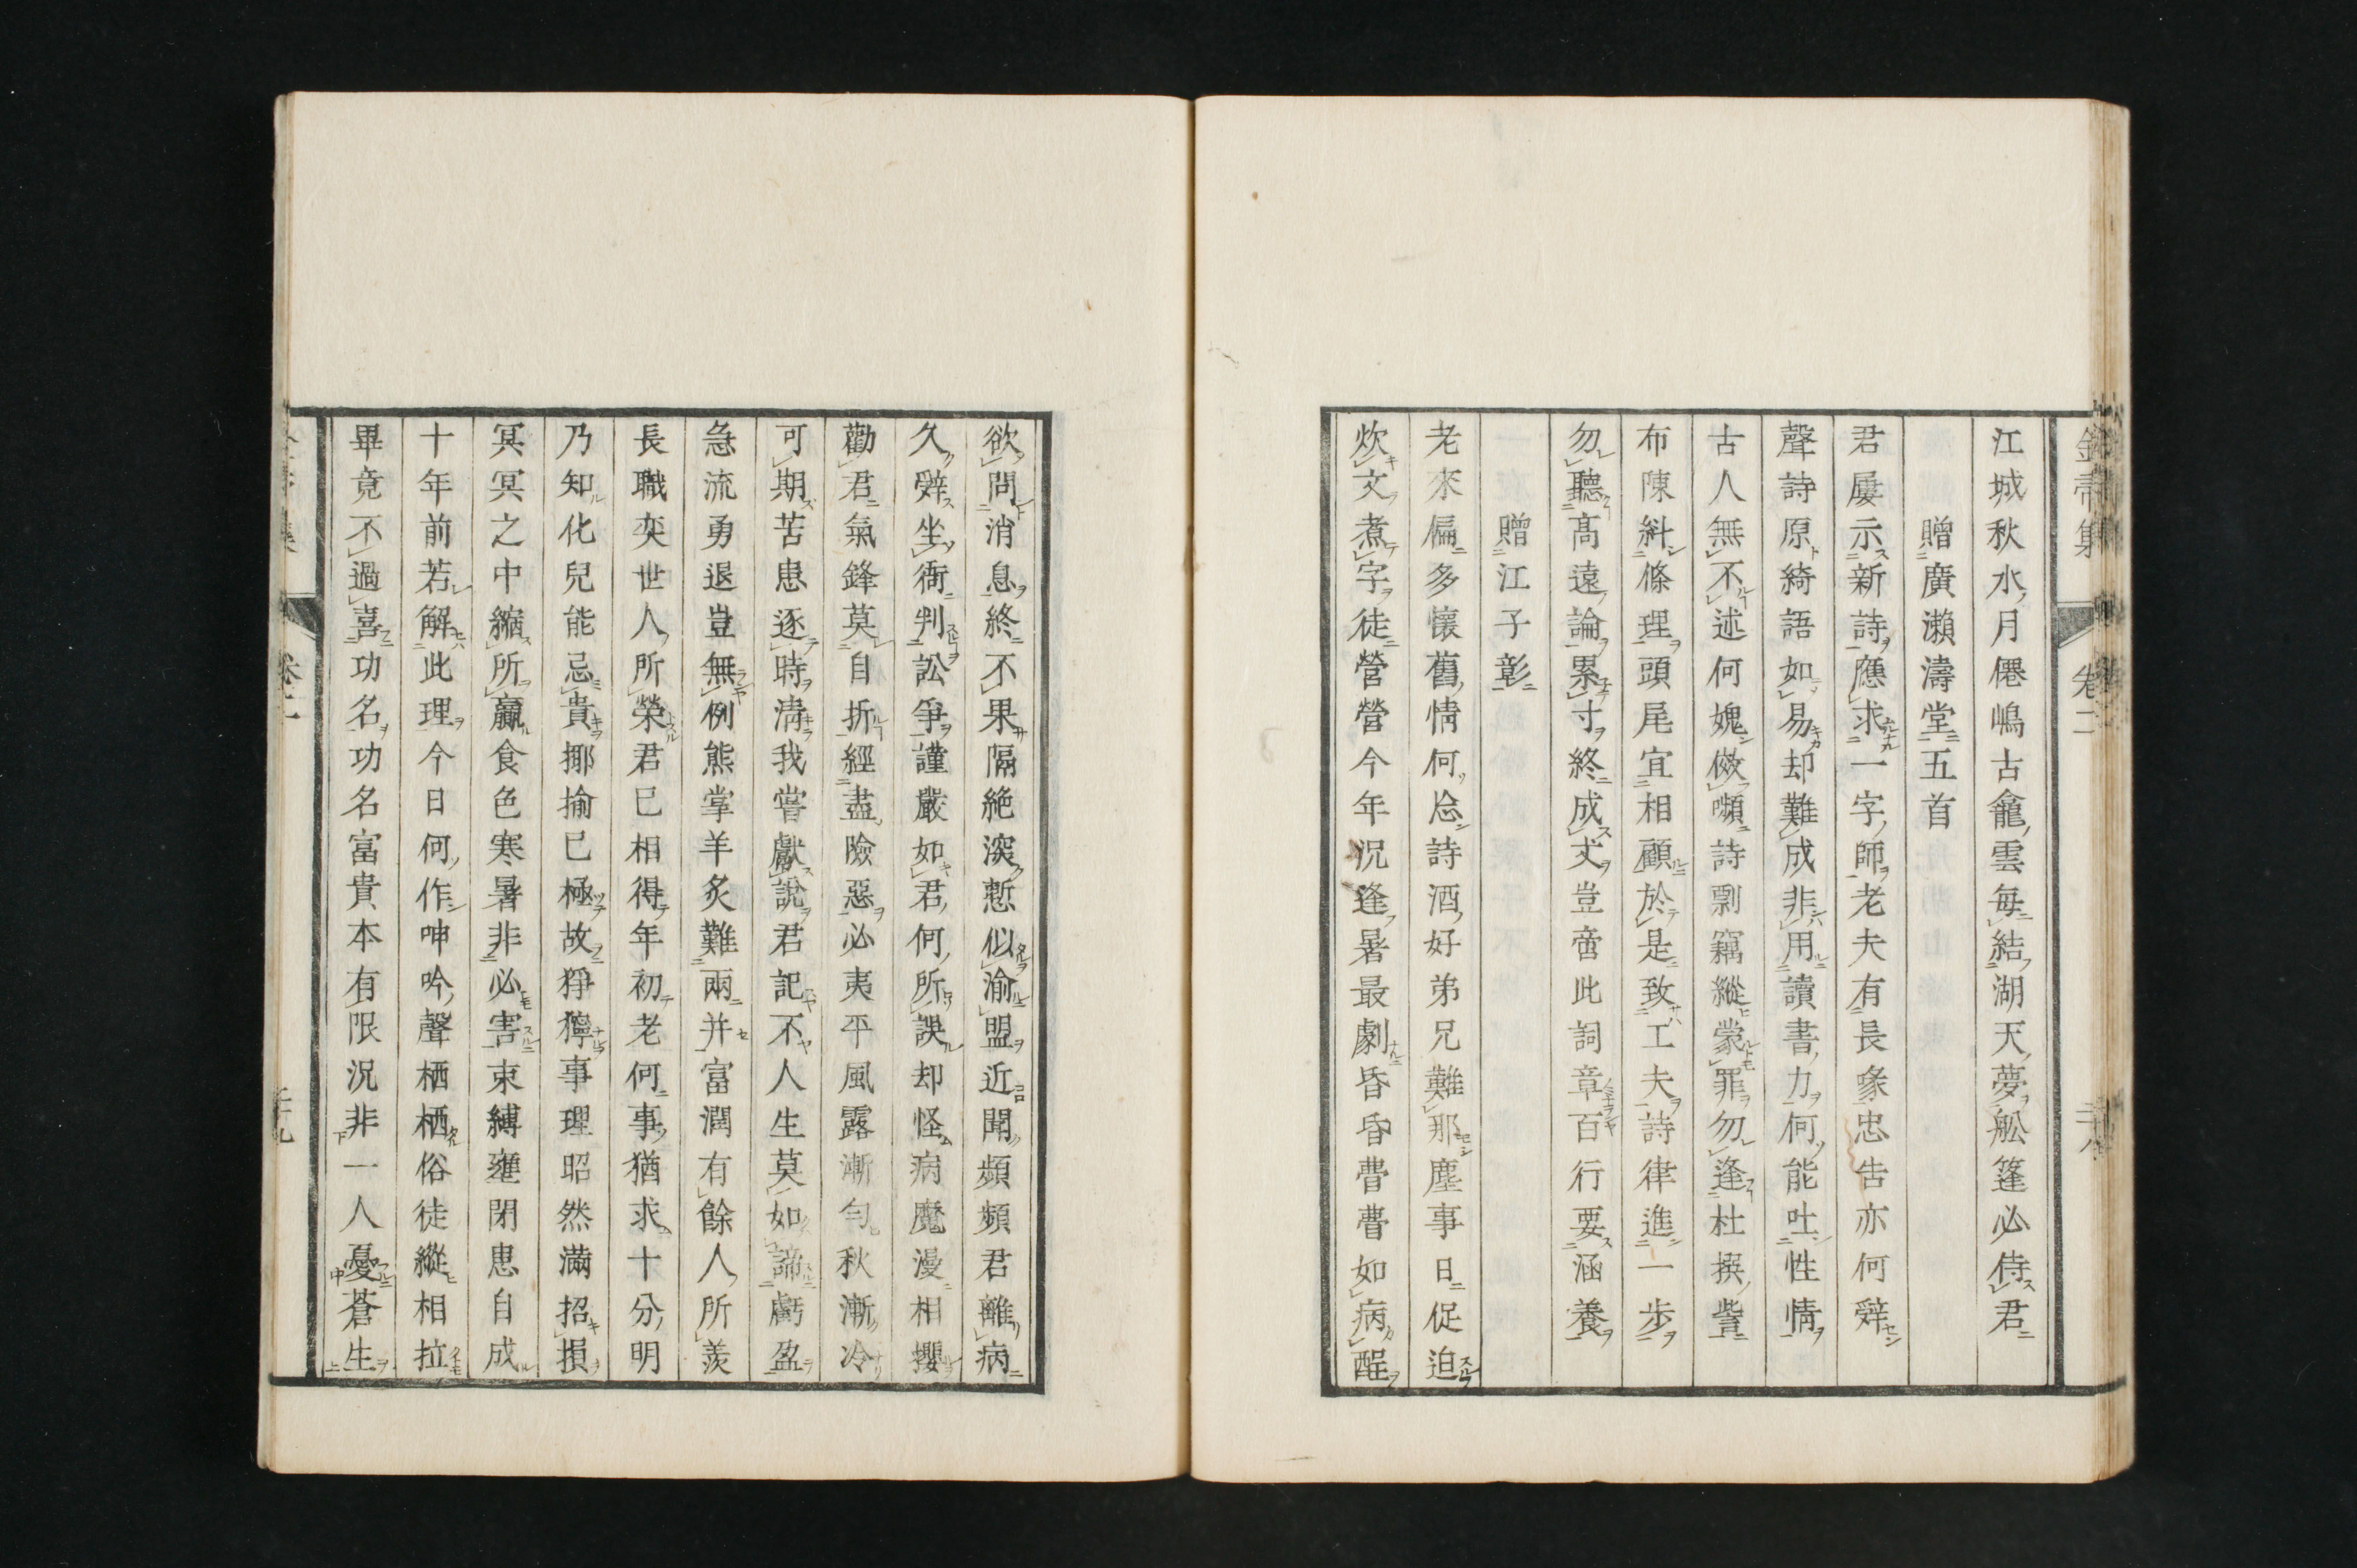 江城秋水月僊嶋古龕雲每結湖天夢舩篷必侍君
贈廣瀨濤堂五首
君屢示新詩應求一字師老夫有長喙忠告亦何辤
聲詩原綺語如易却難成非用讀書力何能吐性情
古人無不述何媿傚嚬詩剽竊縱蒙罪勿逢杜撰訾
布陳糾條理頭尾宜相顧於是致工夫詩律進一步
勿聽高遠論累寸終成丈豈啻此詞章百行要涵養
贈江子彰
老來偏多懷舊情何忩詩酒好弟兄難那塵事日促迫
炊文煮字徒營營今年況逢暑最劇昏昏瞢瞢如病酲
欲問消息終不果隔絶深慙似渝盟近聞頻頻君離病
久辤坐衙判訟爭謹嚴如君何所誤却怪病魔漫相攖
勸君氣鋒莫自折經盡險惡必夷平風露漸勻秋漸冷
可期苦患逐時淸我嘗獻說君記不人生莫如諦虧盈
急流勇退豈無例熊掌羊炙難兩并富潤有餘人所羨
長職奕世人所榮君已相得年初老何事猶求十分明
乃知化兒能忌貴揶揄已極故猙獰事理昭然滿招損
冥冥之中縮所贏食色寒暑非必害束縛壅閉患自成
十年前若解此理今日何作呻吟聲栖栖俗徒縱相拉
畢竟不過喜功名功名富貴本有限況非一人憂蒼生
卷二